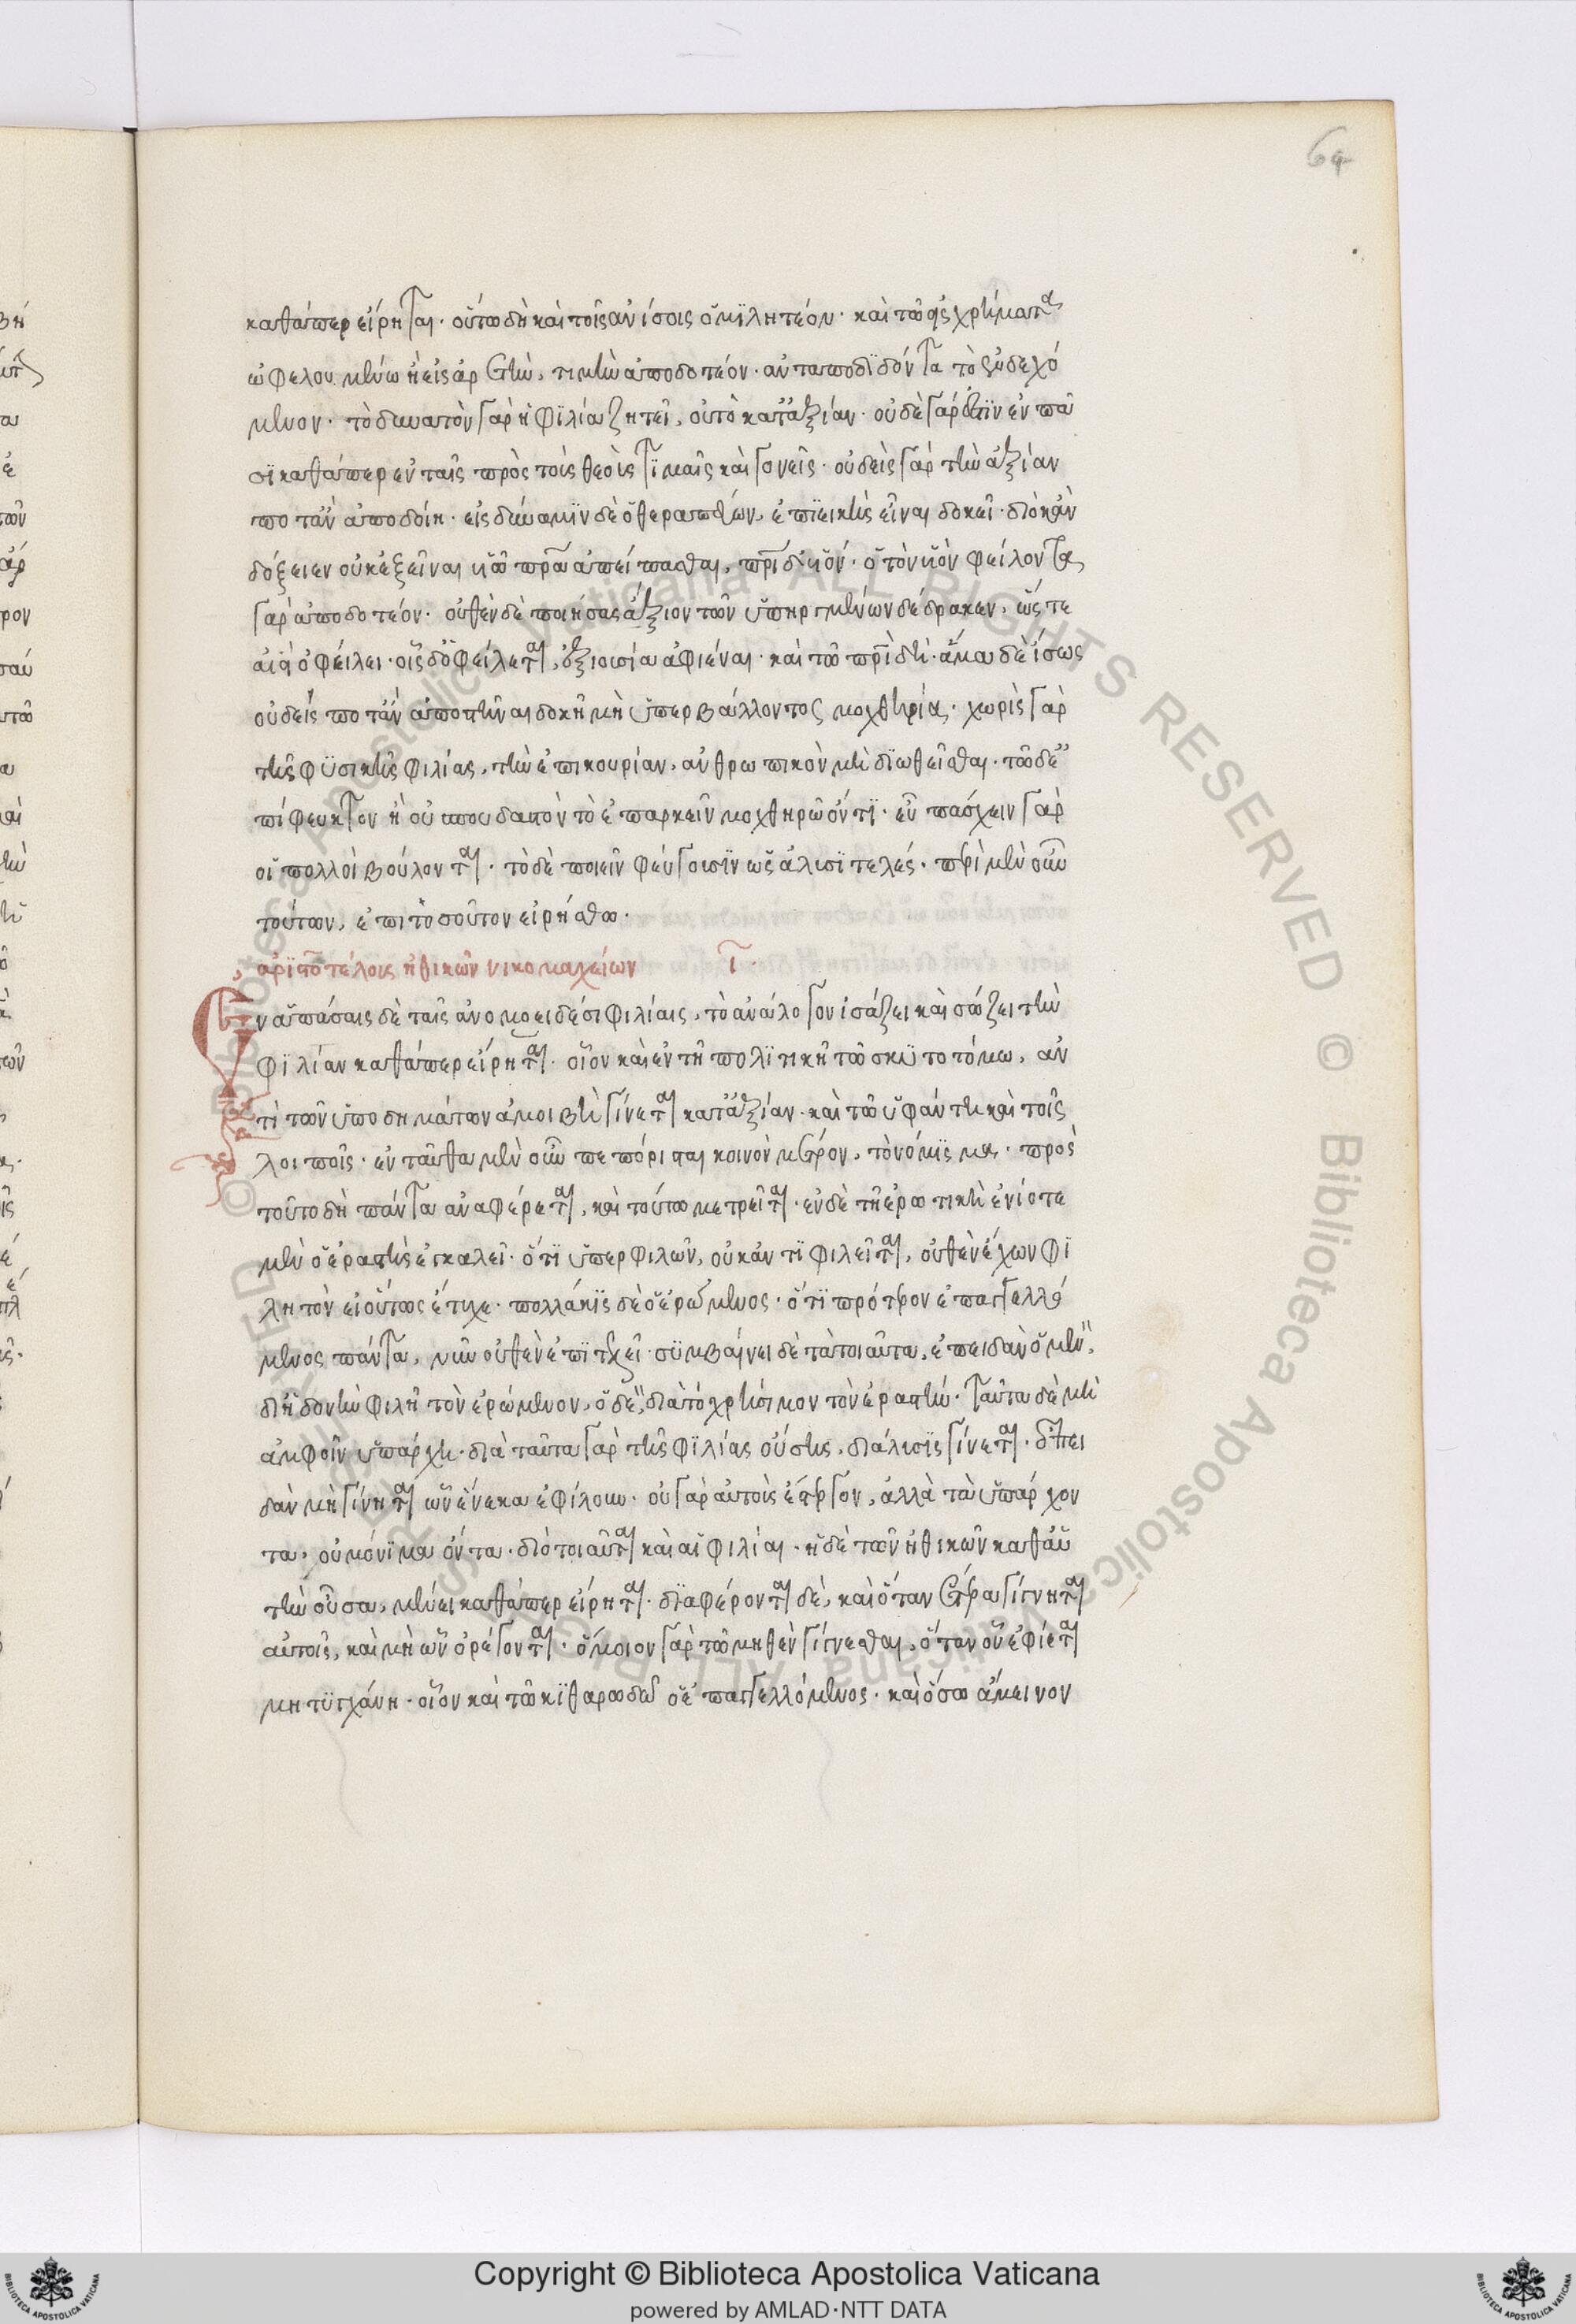 64
καθάπερ εἴρηται· οὕτω δὴ καὶ τοῖς ἀνίσοις ὁμϊλητέον· καὶ τῶ εἰς χρήματα
ὠφελουμένω ἢ εἰς ἀρετὴν, τιμὴν ἀποδοτέον· ἀνταποδϊδόντα τὸ ἐνδεχό
μενον· τὸ δυνατὸν γὰρ ἡ φϊλία ζητεῖ, οὐ τὸ κατ' ἀξίαν· οὐδὲ γάρ ἐστϊν ἐν πᾶ
σϊ καθάπερ ἐν ταῖς πρὸς τοὺς θεοὺς τϊμαῖς καὶ γονεῖς· οὐδεὶς γάρ τὴν ἀξίαν
ποτ' ἂν ἀποδοίη· εἰς δύναμϊν δὲ ὁ θεραπεύων, ἐπϊεικὴς εἶναι δοκεῖ· διὸ κἂν
δόξειεν οὐκ ἐξεῖναι υἱῶ πρα ἀπείπασθαι, πρὶ δ' υἱόν· ὀφείλοντα
γὰρ ἀποδοτέον· οὐθὲν δὲ ποιήσας ἄξιον τῶν ὑπηργμένων δέδρακεν, ὥστε
ἀεὶ ὀφείλει· οἷς δ' ὀφείλεται, ἐξουσία ἀφιέναι· καὶ τῶ πρὶ δή· ἅμα δὲ ἴσως
οὐδείς ποτ' ἂν ἀποστῆναι δοκῆ μὴ ὑπερβάλλοντος μοχθηρίᾳ· χωρὶς γὰρ
τῆς φϋσικῆς φιλίας, τὴν ἐπικουρίαν, ἀνθρωπικὸν μὴ δϊωθεῖσθαι· τῶ δὲ
πίφευκτον ἢ οὐ σπουδαστὸν τὸ ἐπαρκεῖν μοχθηρῶ ὄντϊ· εὖ πάσχειν γὰρ
οἱ πολλοὶ βούλονται· τὸ δὲ ποιεῖν φεύγουσϊν ὡς ἀλυσϊτελές· περὶ μὲν οὖν
τούτων, ἐπι τοσοῦτον εἰρήσθω·
ἀρϊστοτέλους ἠθικῶν νικομαχείων ι·
Ἐν ἁπάσαις δὲ ταῖς ἀνομοειδέσι φιλίαις, τὸ ἀνάλογον ἰσάζει καὶ σώζει τὴν
φϊλίαν καθάπερ εἴρηται· οἷον καὶ ἐν τῆ πολϊτικῆ τῶ σκϋτοτόμω, ἀν
τὶ τῶν ὑποδημάτων ἀμοιβὴ γίνεται κατ' ἀξίαν· καὶ τῶ ὑφάντη καὶ τοῖς
λοιποῖς· ἐνταῦθα μὲν οὖν πεπόρισται κοινὸν μέτρον, τὸ νόμϊσμα· πρὸς
τοῦτο δὴ πάντα ἀναφέρεται, καὶ τούτω μετρεῖται· ἐν δὲ τῆ ἐρωτικῆ ἐνίοτε
μὲν ὁ ἐραστὴς ἐγκαλεῖ· ὅτϊ ὑπερφιλῶν, οὐκ ἀντϊφιλεῖται, οὐθὲν ἔχων φϊ
λητὸν εἰ οὕτως ἔτυχε· πολλάκϊς δὲ ὁ ἐρώμενος· ὅτϊ πρότερον ἐπαγγελλό
μενος πάντα, νῦν οὐθὲν ἐπϊτελεῖ· σϋμβαίνει δὲ τὰ τοιαῦτα, ἐπειδὰν ὁ μὲν
δι' ἡδονὴν φιλῆ τὸν ἐρώμενον, ὁ δὲ, διὰ τὸ χρήσιμον τὸν ἐραστήν· ταῦτα δὲ μὴ
ἀμφοῖν ὑπάρχη· διὰ ταῦτα γὰρ τῆς φϊλίας οὔσης, διάλυσϊς γίνεται· ἐπει
δὰν μὴ γίνηται ὧν ἕνεκα ἐφίλουν· οὐ γὰρ αὐτοὺς ἔστεργον, ἀλλὰ τὰ ὑπάρχον
τα, οὐ μόνϊμα ὄντα· διὸ τοιαῦται καὶ αἱ φιλίαι· ἡ δὲ τῶν ἠθικῶν καθ' αὑ
τὴν οὖσα, μένει καθάπερ εἴρηται· δϊαφέρονται δὲ, καὶ ὅταν ἕτερα γίγνηται
αὐτοῖς, καὶ μὴ ὧν ὀρέγονται· ὅμοιον γὰρ τῶ μηθὲν γίγνεσθαι, ὅταν οὗ ἐφίεται
μὴ τϋγχάνη· οἷον καὶ τῶ κϊθαρωδῶ ὁ ἐπαγγελλόμενος· καὶ ὅσω ἄμεινον
Copyright © Biblioteca Apostolica Vaticana
powered by AMLAD·NTT DATA